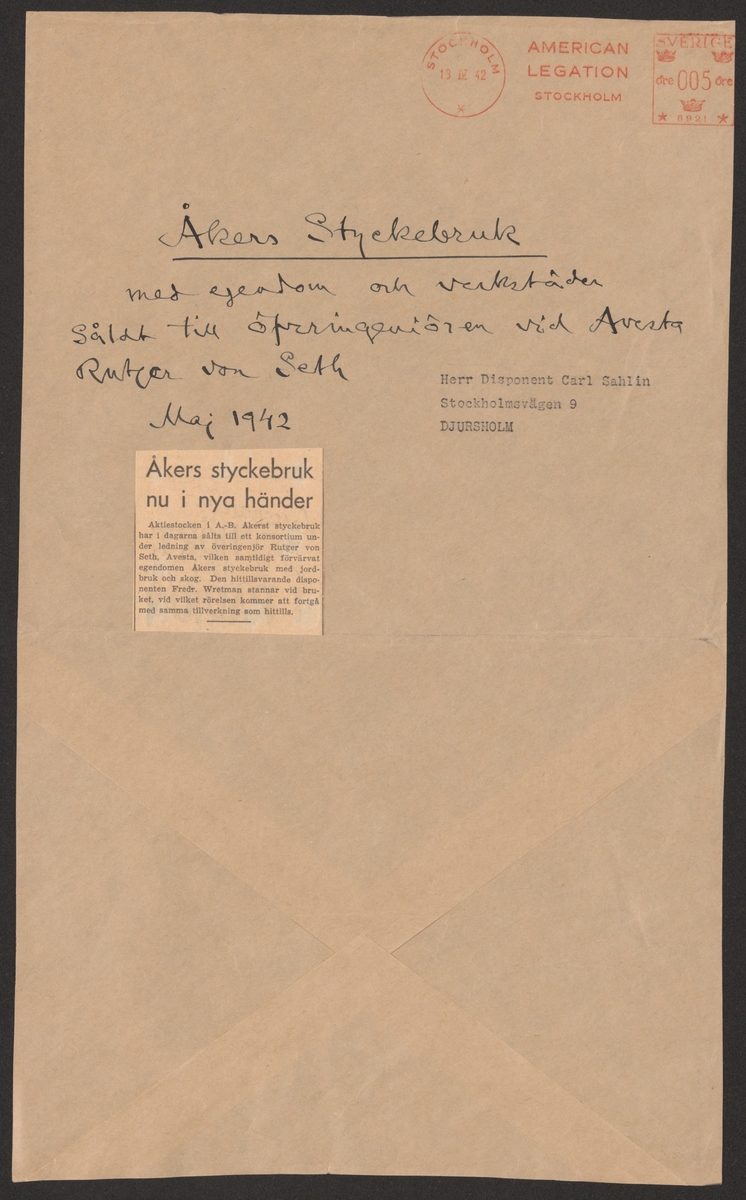 STOCKHOLM
13 IX 42
AMERICAN
LEGATION
STOCKHOLM
SVERIGE
öre 005 öre
8921
Åkers Styckebruk
med egendom och verkstäder
Såldt till öfveringeniören vid Avesta
Rutger von Seth
Maj 1942
Herr Disponent Carl Sahlin
Stockholmsvägen 9
DJURSHOLM
Åkers styckebruk
nu i nya händer
Aktiestocken i A.-B. Åkerst styckebruk
har i dagarna sålts till ett konsortium un-
der ledning av överingenjör Rutger von
Seth, Avesta, vilken samtidigt förvärvat
egendomen Åkers styckebruk med jord-
bruk och skog. Den hittillsvarande dispo-
nenten Fredr. Wretman stannar vid bru-
ket, vid vilket rörelsen kommer att fortgå
med samma tillverkning som hittills.